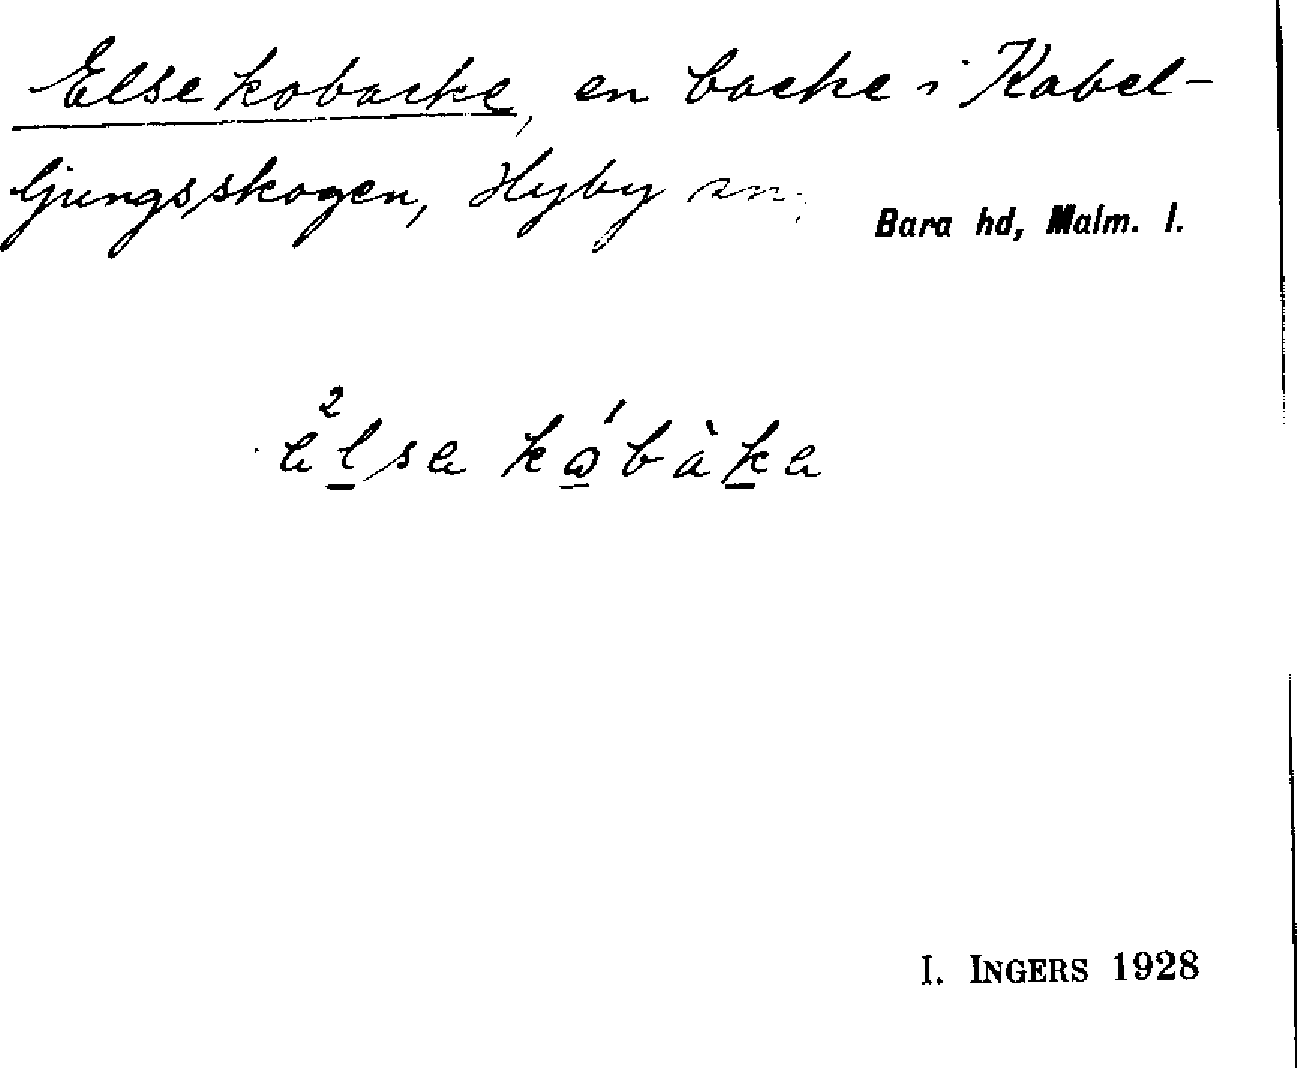 Elsekobacke, en backe i Kabel-
ljungsskogen, Hyby sn. Bara hd, Malm. l.
I. INGERS 1928